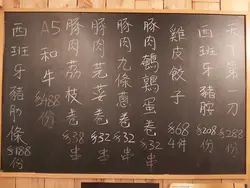 天牛刀 $283份
西班牙豬腩 $208份
雞皮餃子 $68 4件
豚肉鵪鶉蛋卷 $38串
豚肉九條蔥卷 $32串
豚肉芫荽卷 $32串
豚肉荔枝卷 $38串
A5和牛 $488份
西班牙豬肋條 $188份